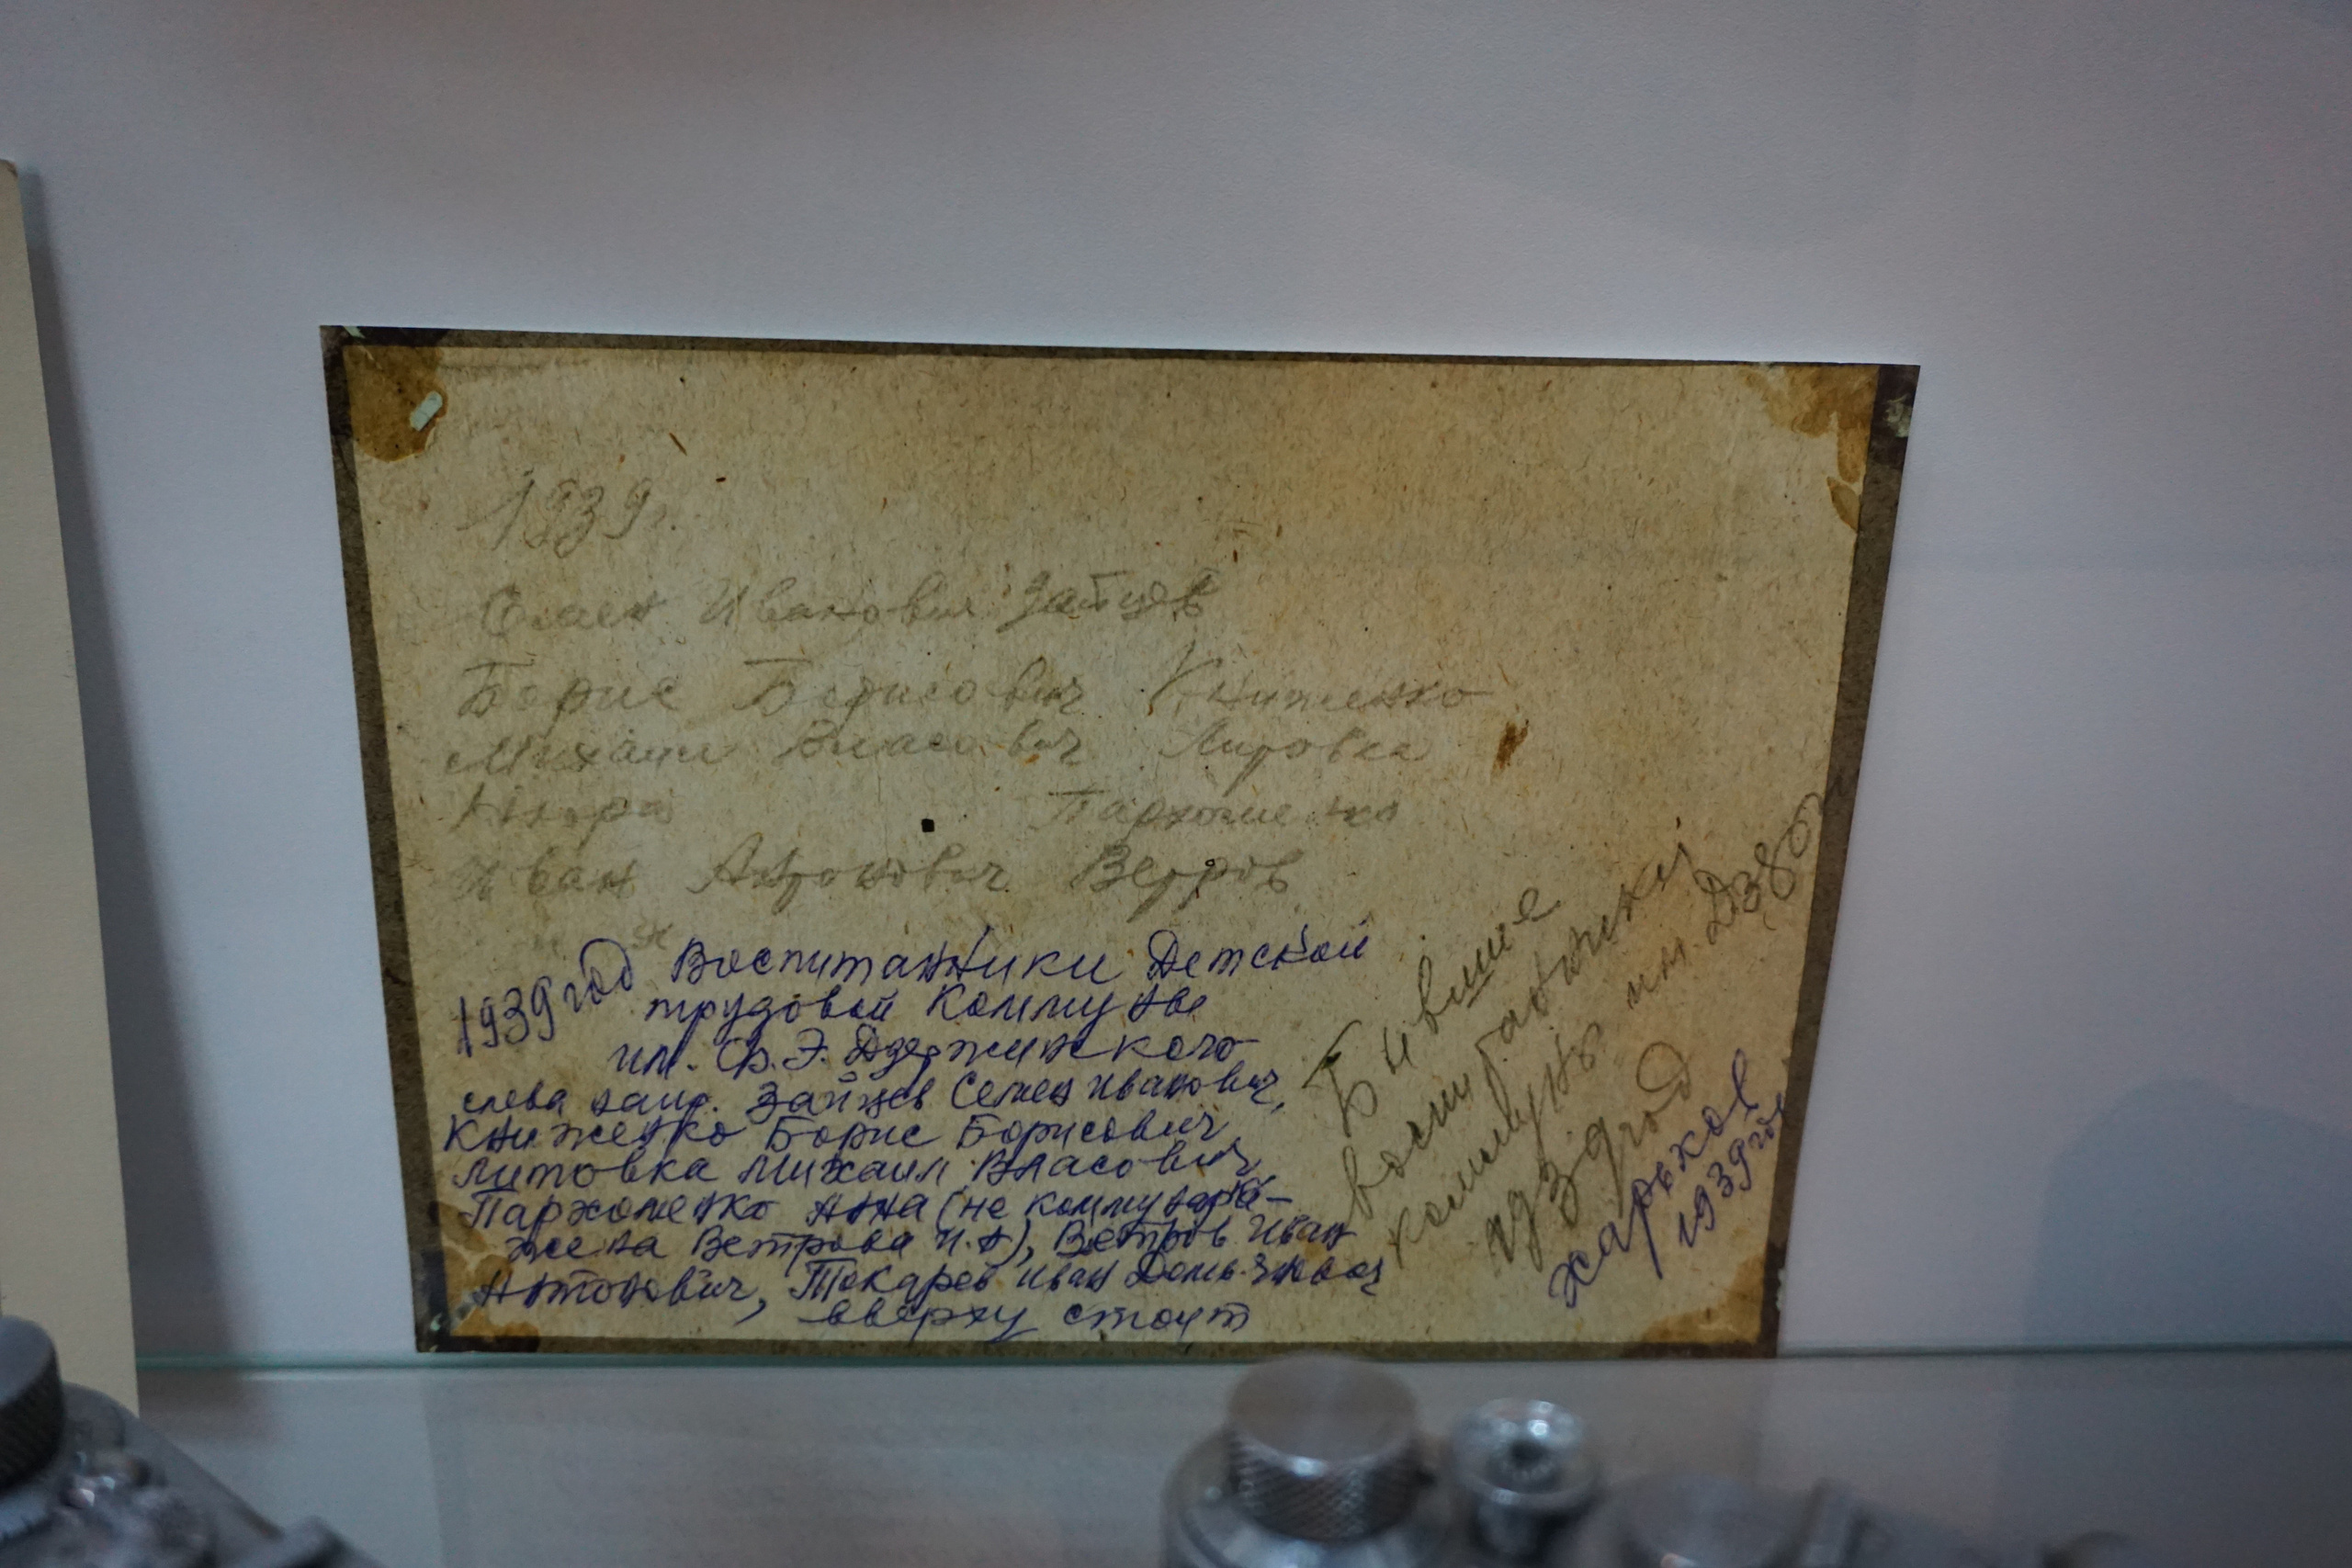 1939г.
Семен Иванович Зайцев
Борис Борисович Книженко
Михаил Власович Литовка
Нюра Пархоменко
Иван Антонович Ветров
1939 год Воспитанники Детской
трудовой Коммуны
им. Ф.Э. Дзержинского
слева напр. Зайцев Семен Иванович,
Книженко Борис Борисович,
Литовка Михаил Власович,
Пархоменко Анна (не коммунарка-
жена Ветрова И.А), Ветров Иван
Антонович, Токарев Иван
вверху стоит
Бывшие
воспитанники
коммуны им. Дзер
1939 год
Харьков
1939 год